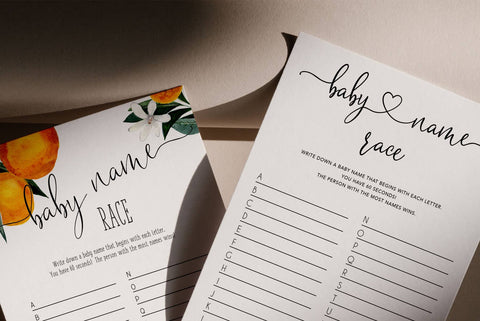 baby name
RACE
Write down a baby name that begins with each letter.
You have 60 seconds! The person with the most names wins.
A
B
C
N
O
P
baby name
race
WRITE DOWN A BABY NAME THAT BEGINS WITH EACH LETTER.
YOU HAVE 60 SECONDS!
THE PERSON WITH THE MOST NAMES WINS.
A
B
C
D
E
F
G
H
I
J
K
N
O
P
Q
R
S
T
U
V